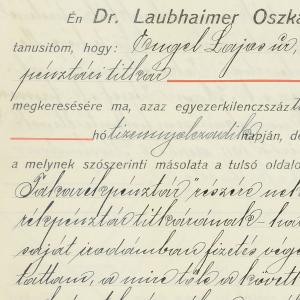 Én Dr. Laubhaimer Oszká
tanusítom, hogy: Engel Lajos úr,
pénztári titkár
megkeresésére ma, azaz egyezerkilenczszáz
hó tizennyolczadik napján, de
a melynek szószerinti másolata a tulsó oldalo
Takarékpénztár" részére
rékpénztár titkárának
saját irodámban fizetés vége
tattam, a mire tőle a követ